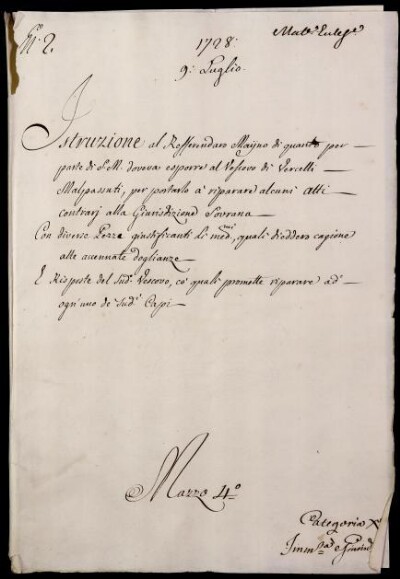 N.° 2.
Mat.e Eccles.e
1728
9: Luglio.
Istruzione al Refferendaro Mayno di quanto per
parte di S. M. doveva esporre al Vescovo di Vercelli
Malpassuti, per portarlo à riparare alcuni atti
contrarj alla Giurisdizione Sovrana
Con diverse Pezze giustificanti li med.mi, quali diedero cagione
alle accennate doglianze
E Risposte del Sud.o Vescovo, co' quali promette riparare ad
ogn'uno de' Sud.i Capi
Mazzo 4.o
Categoria X.a